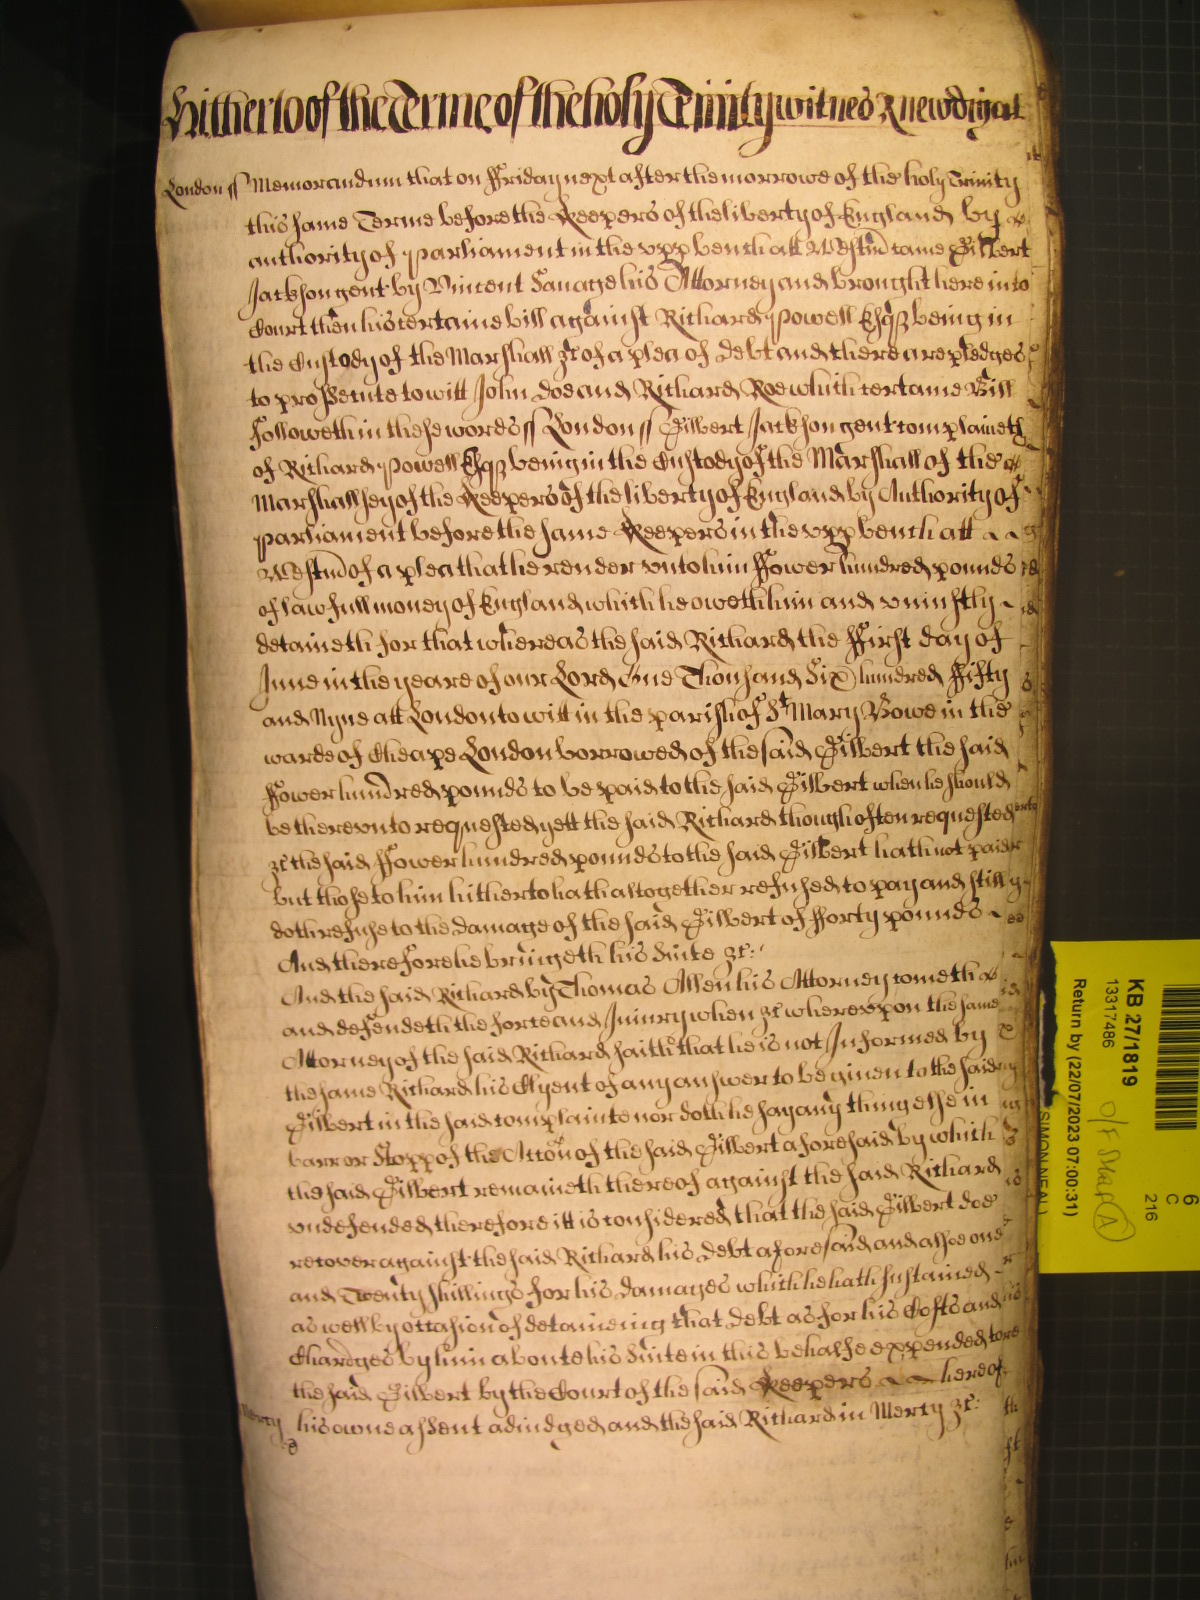 Hitherto of the Terme of the holy Trinity witnes R newdigat
London ss Memorandum that on ffriday next after the morrowe of the holy Trinity
this same Terme before the Keepers of the liberty of England by
authority of parliament in the vpp bench att Westm came Gilbert
Jackson gent by Vincent Sauage his Attorney and brought here into
Court then his certaine bill against Richard Powell Esqz being in
the Custody of the Marshall zc of a plea of debt and there are pledges
to prossecute to witt John doe and Richard Roe which certaine Bill
followeth in these words ss London ss Gilbert Jackson gent complaineth
of Richard Powell Esqz being in the Custody of the Marshall of the
Marshallsey of the Keepers of the liberty of England by Authority of
parliament before the same Keepers in the vpp bench att
Westm of a plea that he render vnto him ffower hundred pounds
of lawfull money of England which he oweth him and vniustly
detaineth for that whereas the said Richard the ffirst day of
June in the yeare of our Lord One Thousand Six hundred ffifty
and Nyne att London to witt in the parish of St Mary Bowe in the
warde of Cheape London borrowed of the said Gilbert the said
ffower hundred pounds to be paid to the said Gilbert when he should
be therevnto requested yett the said Richard though often requested
zc the said ffower hundred pounds to the said Gilbert hath not paid
but those to him hitherto hath altogether refused to pay and still
doth refuse to the damage of the said Gilbert of fforty pounds
And therefore he bringeth his suite zc:
And the said Richard by Thomas Allen his Attorney cometh
and defendeth the force and Iniury when zc wherevpon the same
Attorney of the said Richard saith that he is not Informed by
the same Richard his Clyent of any answer to be giuen to the said
Gilbert in the said complainte nor doth he say any thing else in
barr or stopp of the Accon of the said Gilbert aforesaid by which
the said Gilbert remaineth thereof against the said Richard
vndefended therefore itt is considered that the said Gilbert doe
recover against the said Richard his debt aforesaid and alsoe one
and Twenty shillings for his damages which he hath sustained
as well by occasion of detaineing that debt as for his Costs and
Chardges by him aboute his suite in this behalfe expended to
the said Gilbert by the Court of the said Keepers hereof
Mercy his owne assent adiudged and the said Richard in Mercy zc:
KB 27/1819
13317486
Return by (22/07/2023 07:00:31)
SIMON NEAL
O/F Shelf A
6
C
216